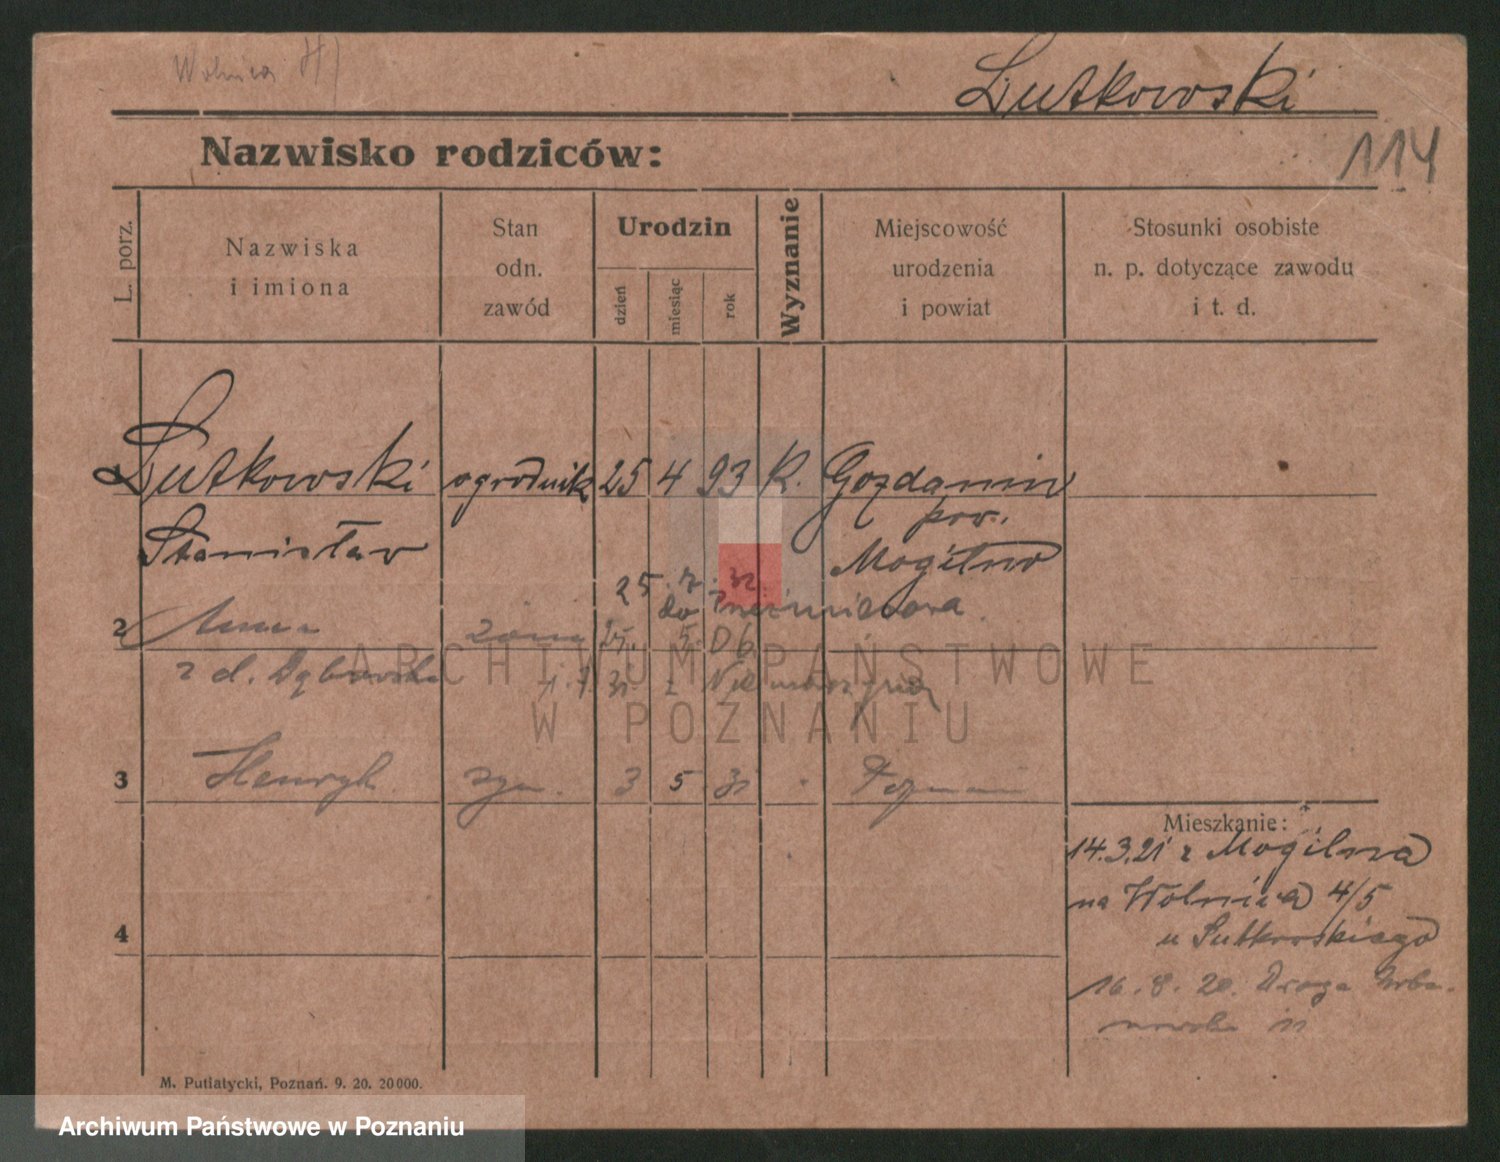 Wolnica
Lutkowski
114
Nazwisko rodziców:
L. porz.
Nazwiska
i imiona
Stan
odn.
zawód
Urodzin
dzień
miesiąc
rok
Wyznanie
Miejscowość
urodzenia
i powiat
Stosunki osobiste
n. p. dotyczące zawodu
i t. d.
1 Lutkowski ogrodnik 25 4 93 K. Gozdanin
Stanisław pow.
Mogilno
25. 7. 32.
do
2 Anna żona 25. 5. 06
z d. Dąbrowska 1. 7. 31 z
3 Henryk syn. 3 5 31 Poznań
4
Mieszkanie:
14.3.21 z Mogilna
na Wolnica 4/5
u Lutkowskiego
16. 8. 20. Droga Urba-
nowska 11
M. Putiatycki, Poznań. 9. 20. 20000.
ARCHIWUM PAŃSTWOWE
W POZNANIU
Archiwum Państwowe w Poznaniu